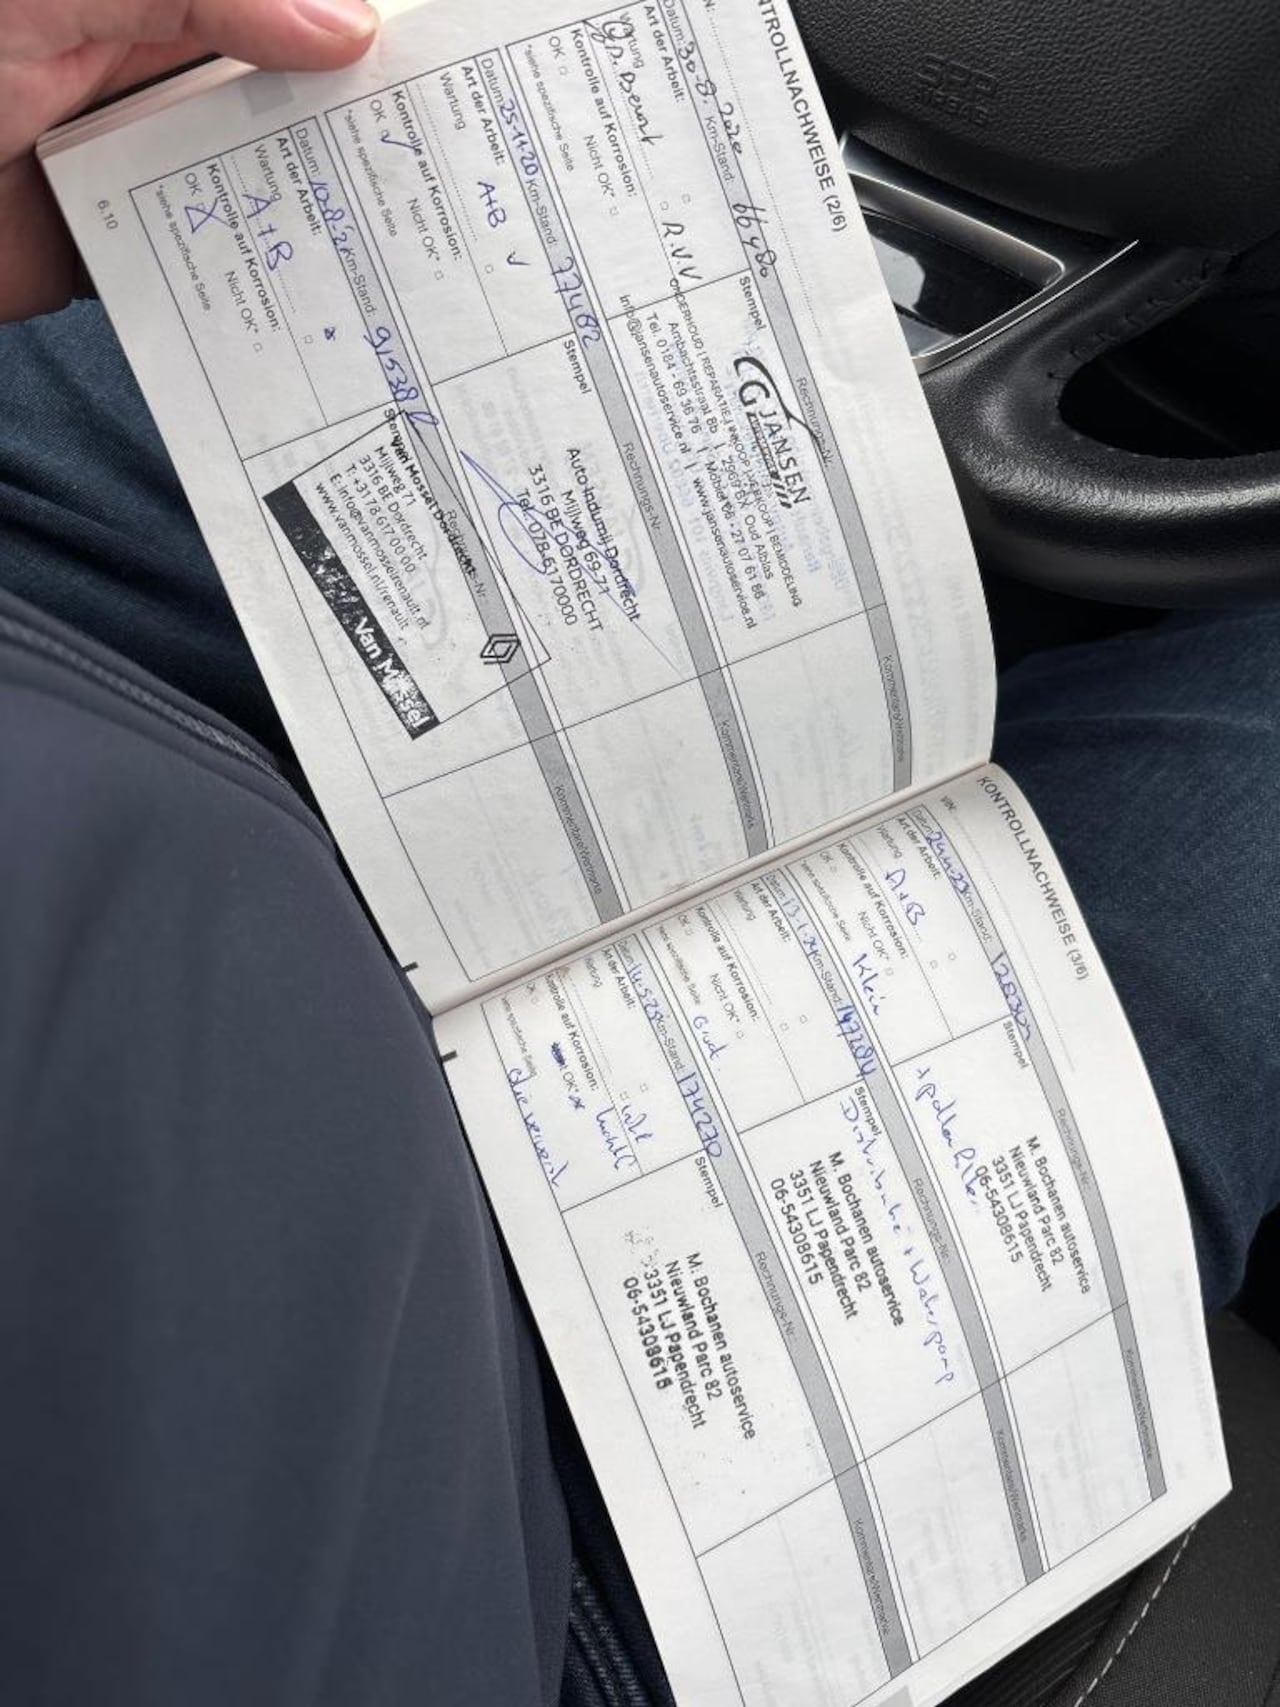 KONTROLLNACHWEISE (2/6)
Datum: 30-8-2020 Km-Stand: 66480
Rechnungs-Nr.
Kommentare/Weitmarks
Art der Arbeit:
Stempel
Wartung
Kontrolle auf Korrosion:
OK Nicht OK*
*siehe spezifische Seite
CG JANSEN
ONDERHOUD | REPARATIE | INKOOP | VERKOOP | BEMIDDELING
Ambachtsstraat 8b | 2959 BX Oud Alblas
Tel. 0184 - 69 36 76 | Mobiel 06 - 27 07 61 86
info@jansenautoservice.nl | www.jansenautoservice.nl
Datum: 25-11-20 Km-Stand: 77482
Rechnungs-Nr.
Art der Arbeit:
Stempel
Wartung A+B
Kontrolle auf Korrosion:
OK Nicht OK*
*siehe spezifische Seite
Auto Indumij Dordrecht
Mijlweg 69-71
3316 BE DORDRECHT
Tel. 078-6170000
Km-Stand: 91538
Rechnungs-Nr.
Art der Arbeit:
Stempel
Wartung A+B
Kontrolle auf Korrosion:
OK Nicht OK*
*siehe spezifische Seite
Van Mossel Dordrecht
Mijlweg 71
3316 BE Dordrecht
T: +3178 617 00 00
E: info@vanmosselrenault.nl
www.vanmossel.nl/renault
Van Mossel
6.10
KONTROLLNACHWEISE (3/6)
VIN:
Km-Stand:
Rechnungs-Nr.
Art der Arbeit:
Stempel
Wartung A+B
Kontrolle auf Korrosion:
OK Nicht OK*
Klein
+ pollenfilter
M. Bochanen autoservice
Nieuwland Parc 82
3351 LJ Papendrecht
06-54308615
Datum: 13-1-24 Km-Stand: 147204
Rechnungs-Nr.
Art der Arbeit:
Stempel
Wartung
Kontrolle auf Korrosion:
OK Nicht OK*
Distributie + Waterpomp
M. Bochanen autoservice
Nieuwland Parc 82
3351 LJ Papendrecht
06-54308615
Km-Stand: 174270
Rechnungs-Nr.
Art der Arbeit:
Stempel
Wartung
Kontrolle auf Korrosion:
OK
M. Bochanen autoservice
Nieuwland Parc 82
3351 LJ Papendrecht
06-54308615